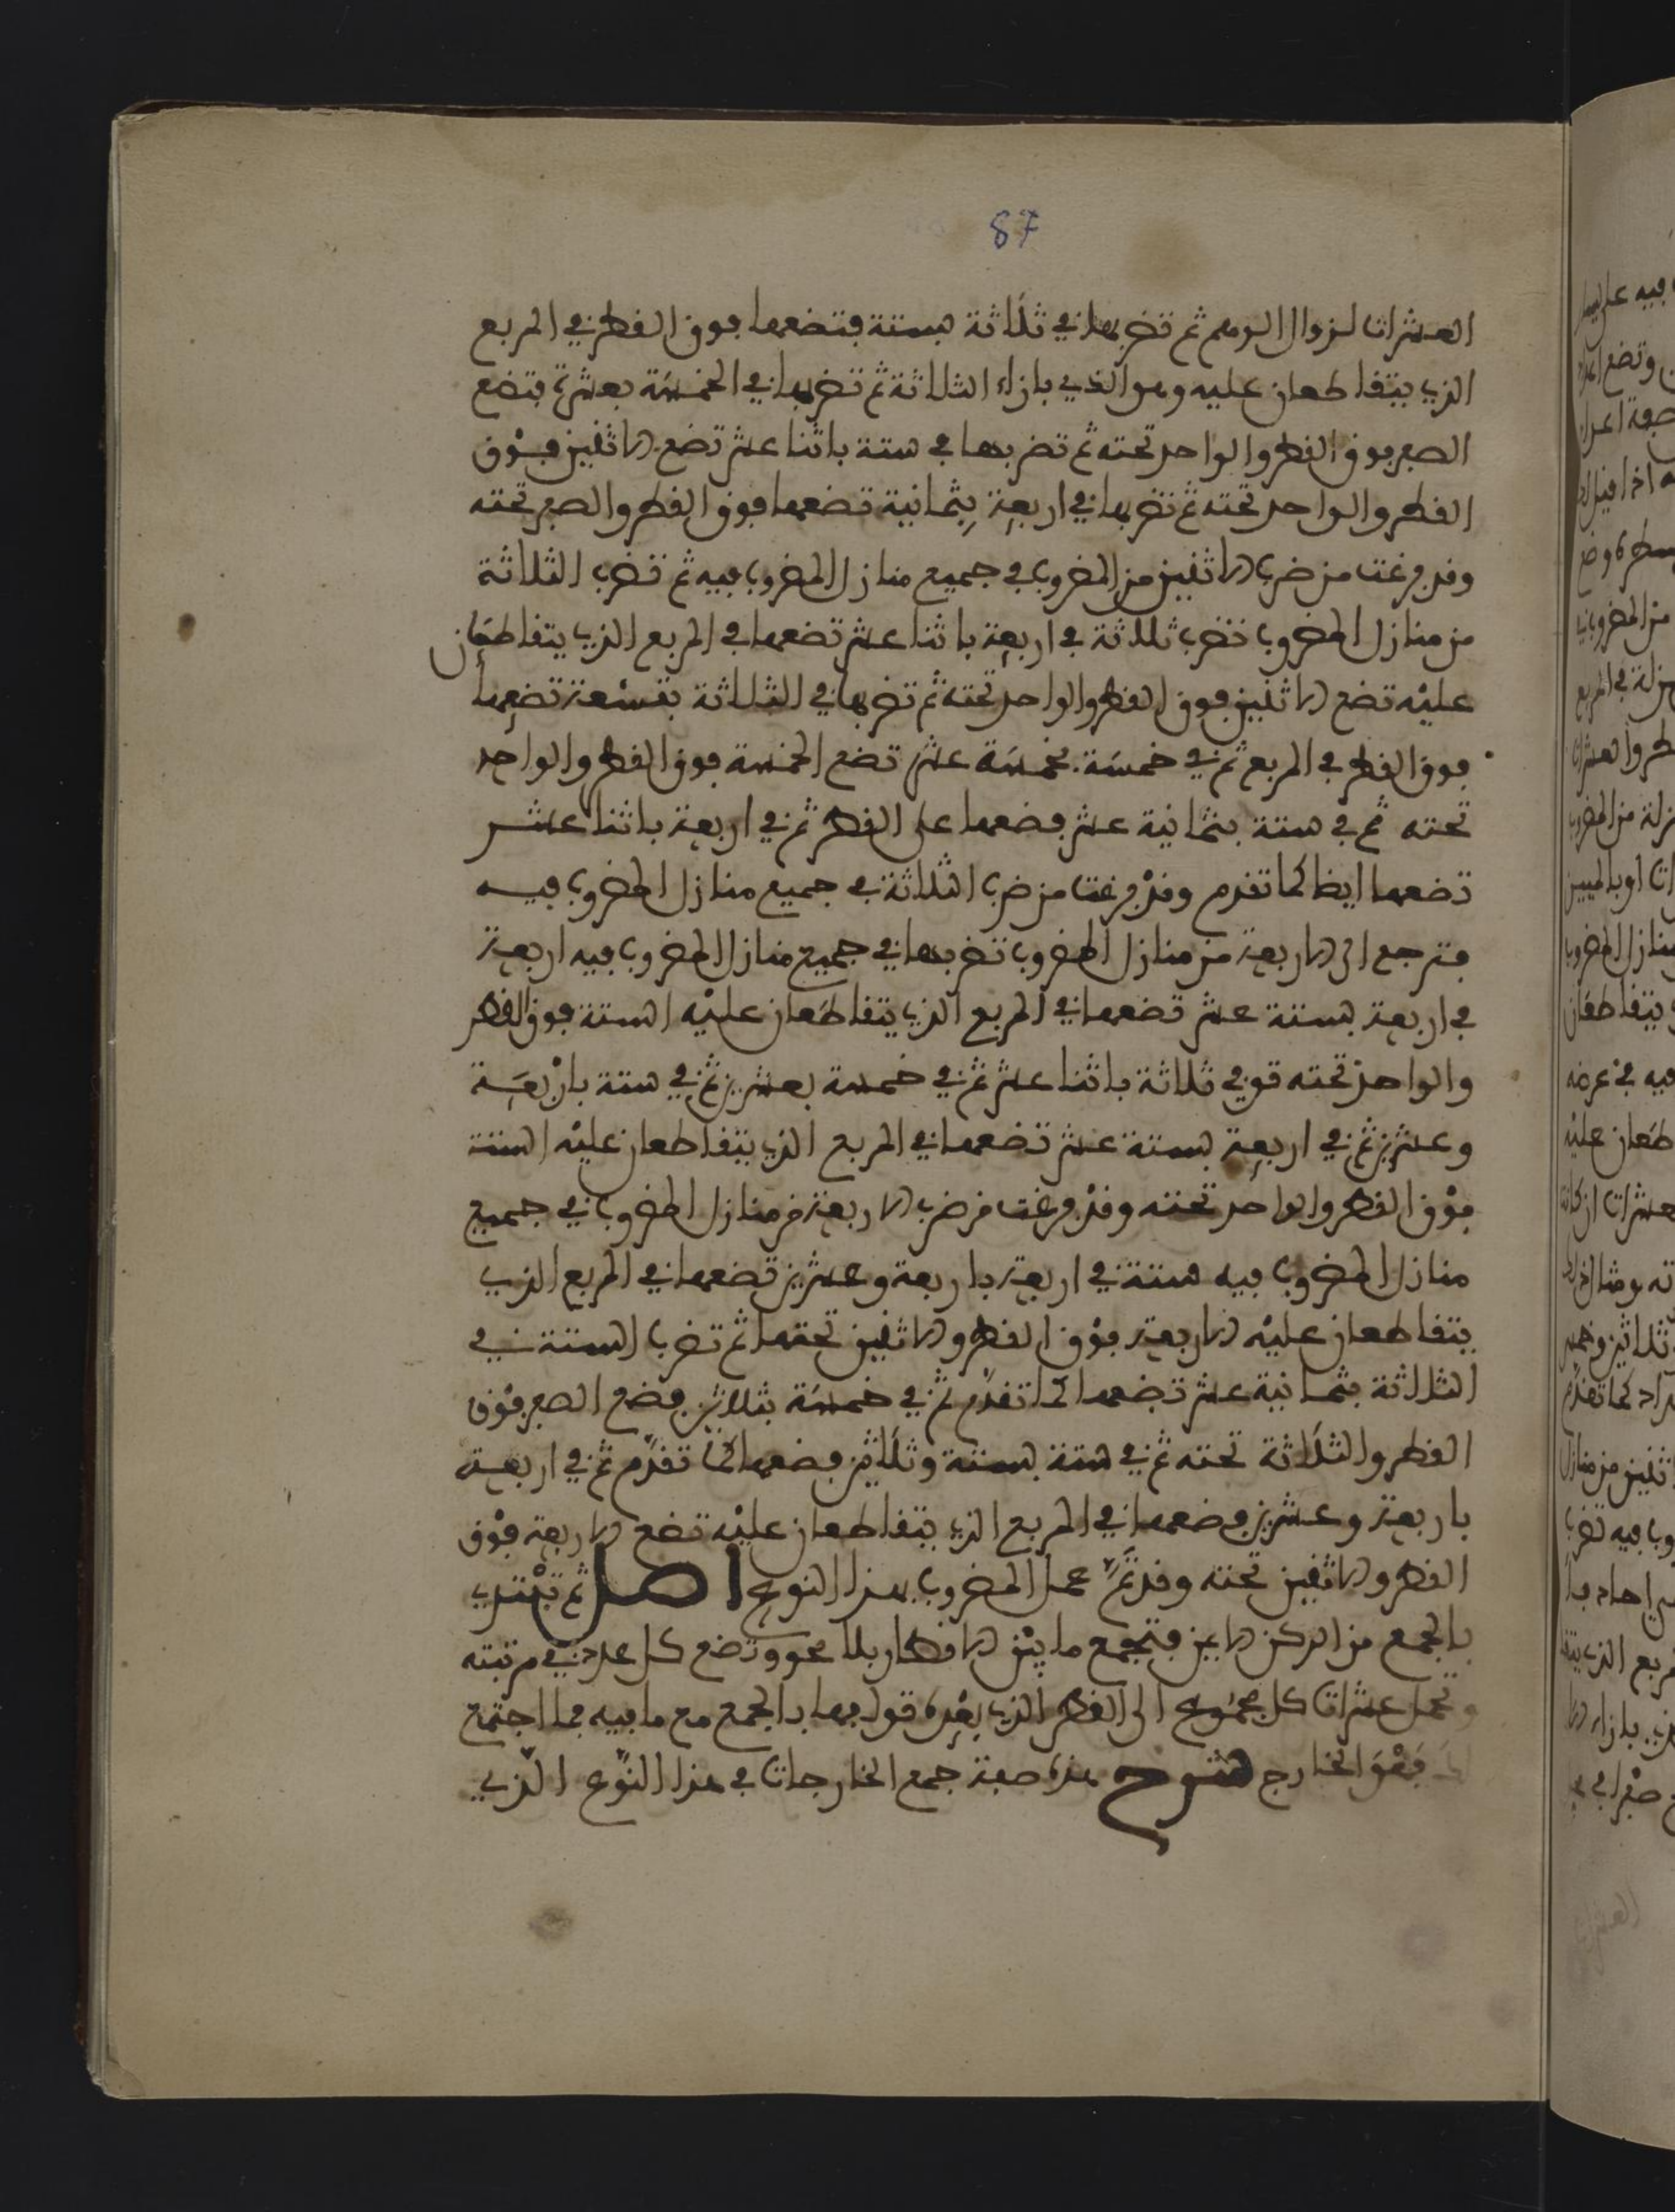 87
العشرات لزوال الوهم ثم تضربها في ثلاثة بستة فتضعها فوق القطر في المربع
الذي يتقاطعان عليه وهو الذي بازاء الثلاثة ثم تضربها في الخمسة بعشرة فتضع
الصفر فوق القطر والواحد تحته ثم تضربها في ستة باثنا عشر تضع الاثنين فوق
القطر والواحد تحته ثم تضربها في اربعة بثمانية تضعها فوق القطر والصفر تحته
وقد فرغت من ضرب الاثنين من المضروب في جميع منازل المضروب فيه ثم تضرب الثلاثة
من منازل المضروب تضرب ثلاثة في اربعة باثنا عشر تضعها في المربع الذي يتقاطعان
عليه تضع الاثنين فوق القطر والواحد تحته ثم تضربها في الثلاثة بتسعة تضعها
فوق القطر في المربع ثم في خمسة بخمسة عشر تضع الخمسة فوق القطر والواحد
تحته ثم في ستة بثمانية عشر فضعها على القطر ثم في اربعة باثنا عشر
تضعها ايضا كما تقدم وقد فرغت من ضرب الثلاثة في جميع منازل المضروب فيه
فترجع الى الاربعة من منازل المضروب تضربها في جميع منازل المضروب فيه اربعة
في اربعة بستة عشر تضعها في المربع الذي يتقاطعان عليه الستة فوق القطر
والواحد تحته وفي ثلاثة باثنا عشر ثم في خمسة بعشرين ثم في ستة باربعة
وعشرين ثم في اربعة بستة عشر تضعها في المربع الذي يتقاطعان عليه الستة
فوق القطر والواحد تحته وقد فرغت من ضرب الاربعة من منازل المضروب في جميع
منازل المضروب فيه ستة في اربعة باربعة وعشرين تضعها في المربع الذي
يتقاطعان عليه الاربعة فوق القطر والاثنين تحتها ثم تضرب الستة في
الثلاثة بثمانية عشر تضعها كما تقدم ثم في خمسة بثلاثين فضع الصفر فوق
القطر والثلاثة تحته ثم في ستة بستة وثلاثين فضعها كما تقدم ثم في اربعة
باربعة وعشرين فضعها في المربع الذي يتقاطعان عليه تضع الاربعة فوق
القطر والاثنين تحته وقد تم عمل المضروب بهذا النوع اصل ثم تبتدي
بالجمع من الركن الايمن فتجمع ما بين الاقطار بلا محو وتضع كل عدد في مرتبته
وتحمل عشرات كل مجموع الى القطر الذي بعده بالجمع مع ما فيه فما اجتمع
فهو الخارج شرح هذه صفة جمع الخارجات في هذا النوع الذي